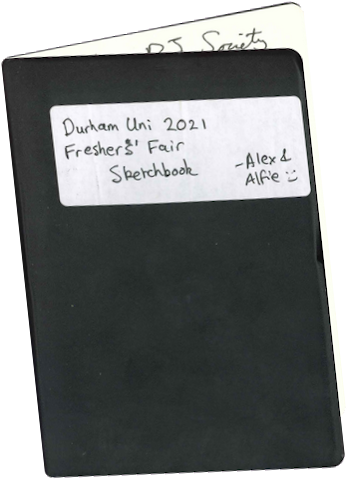 DJ Society
Durham Uni 2021
Freshers' Fair
Sketchbook
-Alex &
Alfie :)